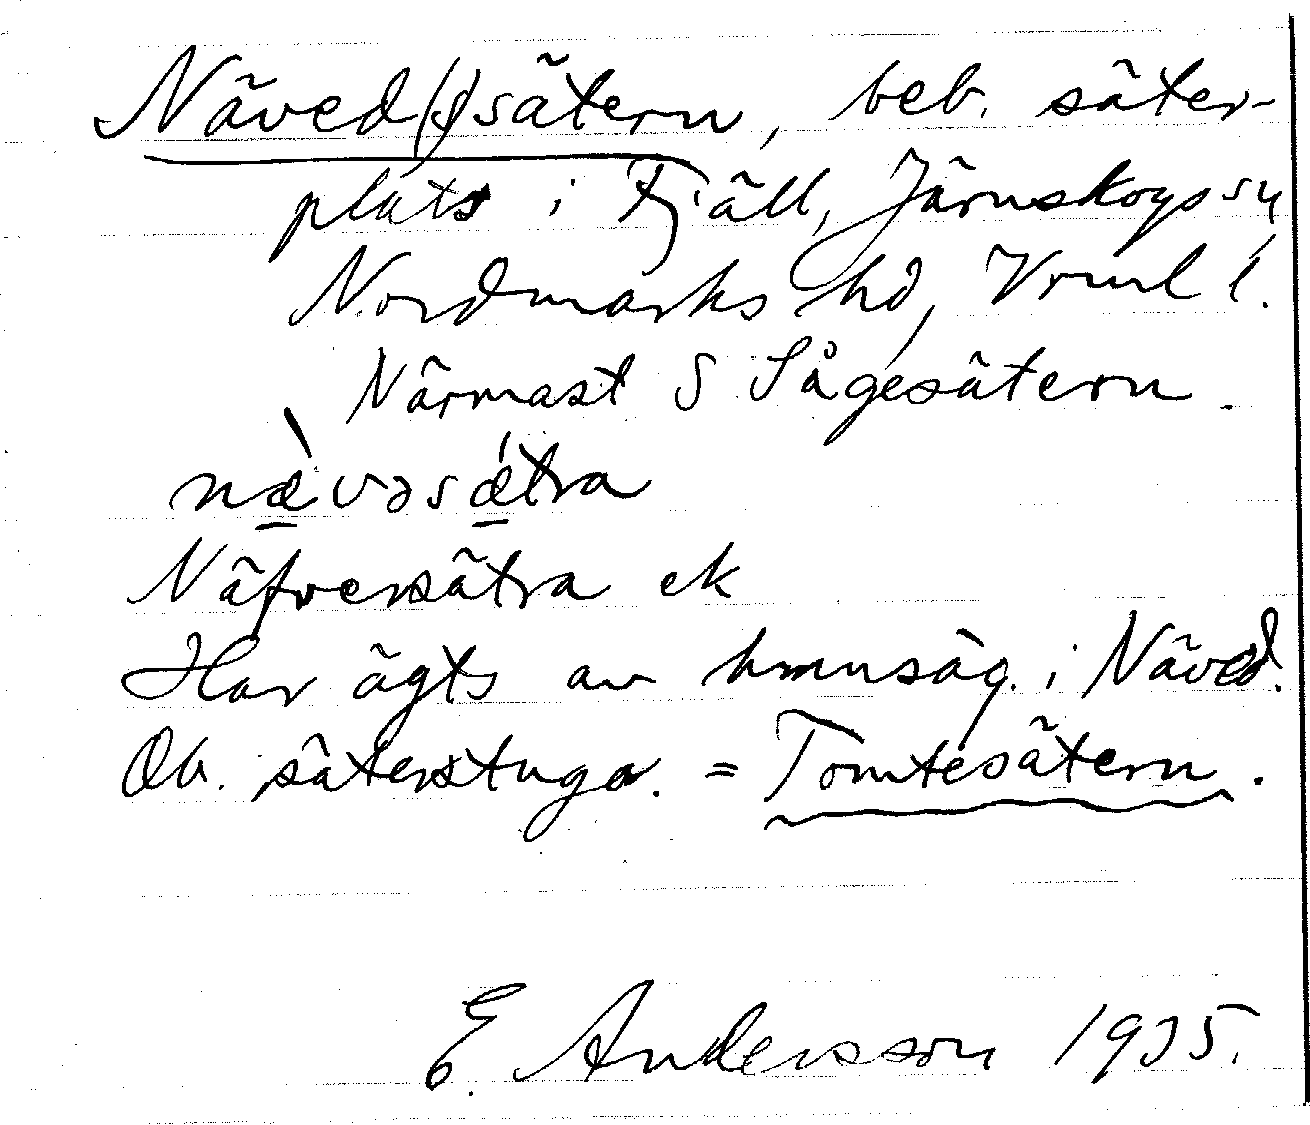 Näved(s)sätern, beb. säter-
plats i Fjäll, Järnskogs sn
Nordmarks hd, Vrml l.
Närmast S Sågesätern.
næ̀vəsǽtra
Näfversätra ek
Har ägts av hmnsäg. i Näved.
Ob. säterstuga. = Tomtesätern.
E. Andersson 1935.